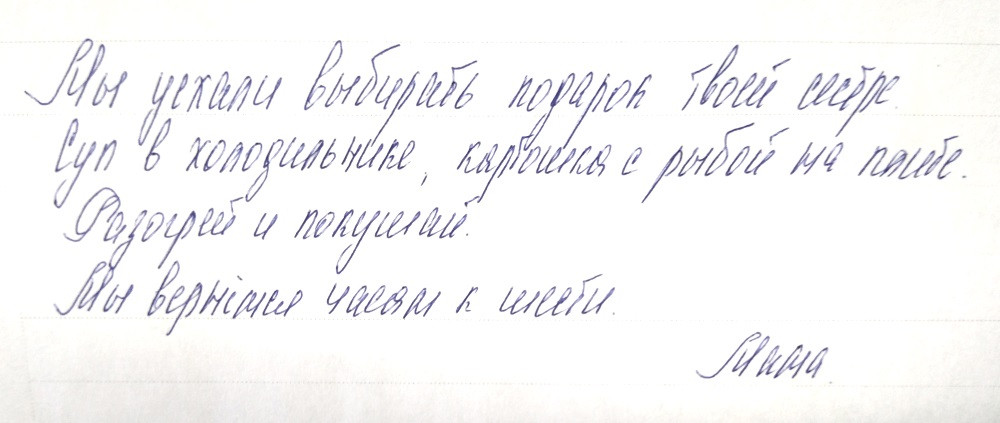 Мы уехали выбирать подарок твоей сестре.
Суп в холодильнике, картошка с рыбой на плите.
Разогрей и покушай.
Мы вернёмся часам к шести.
Мама